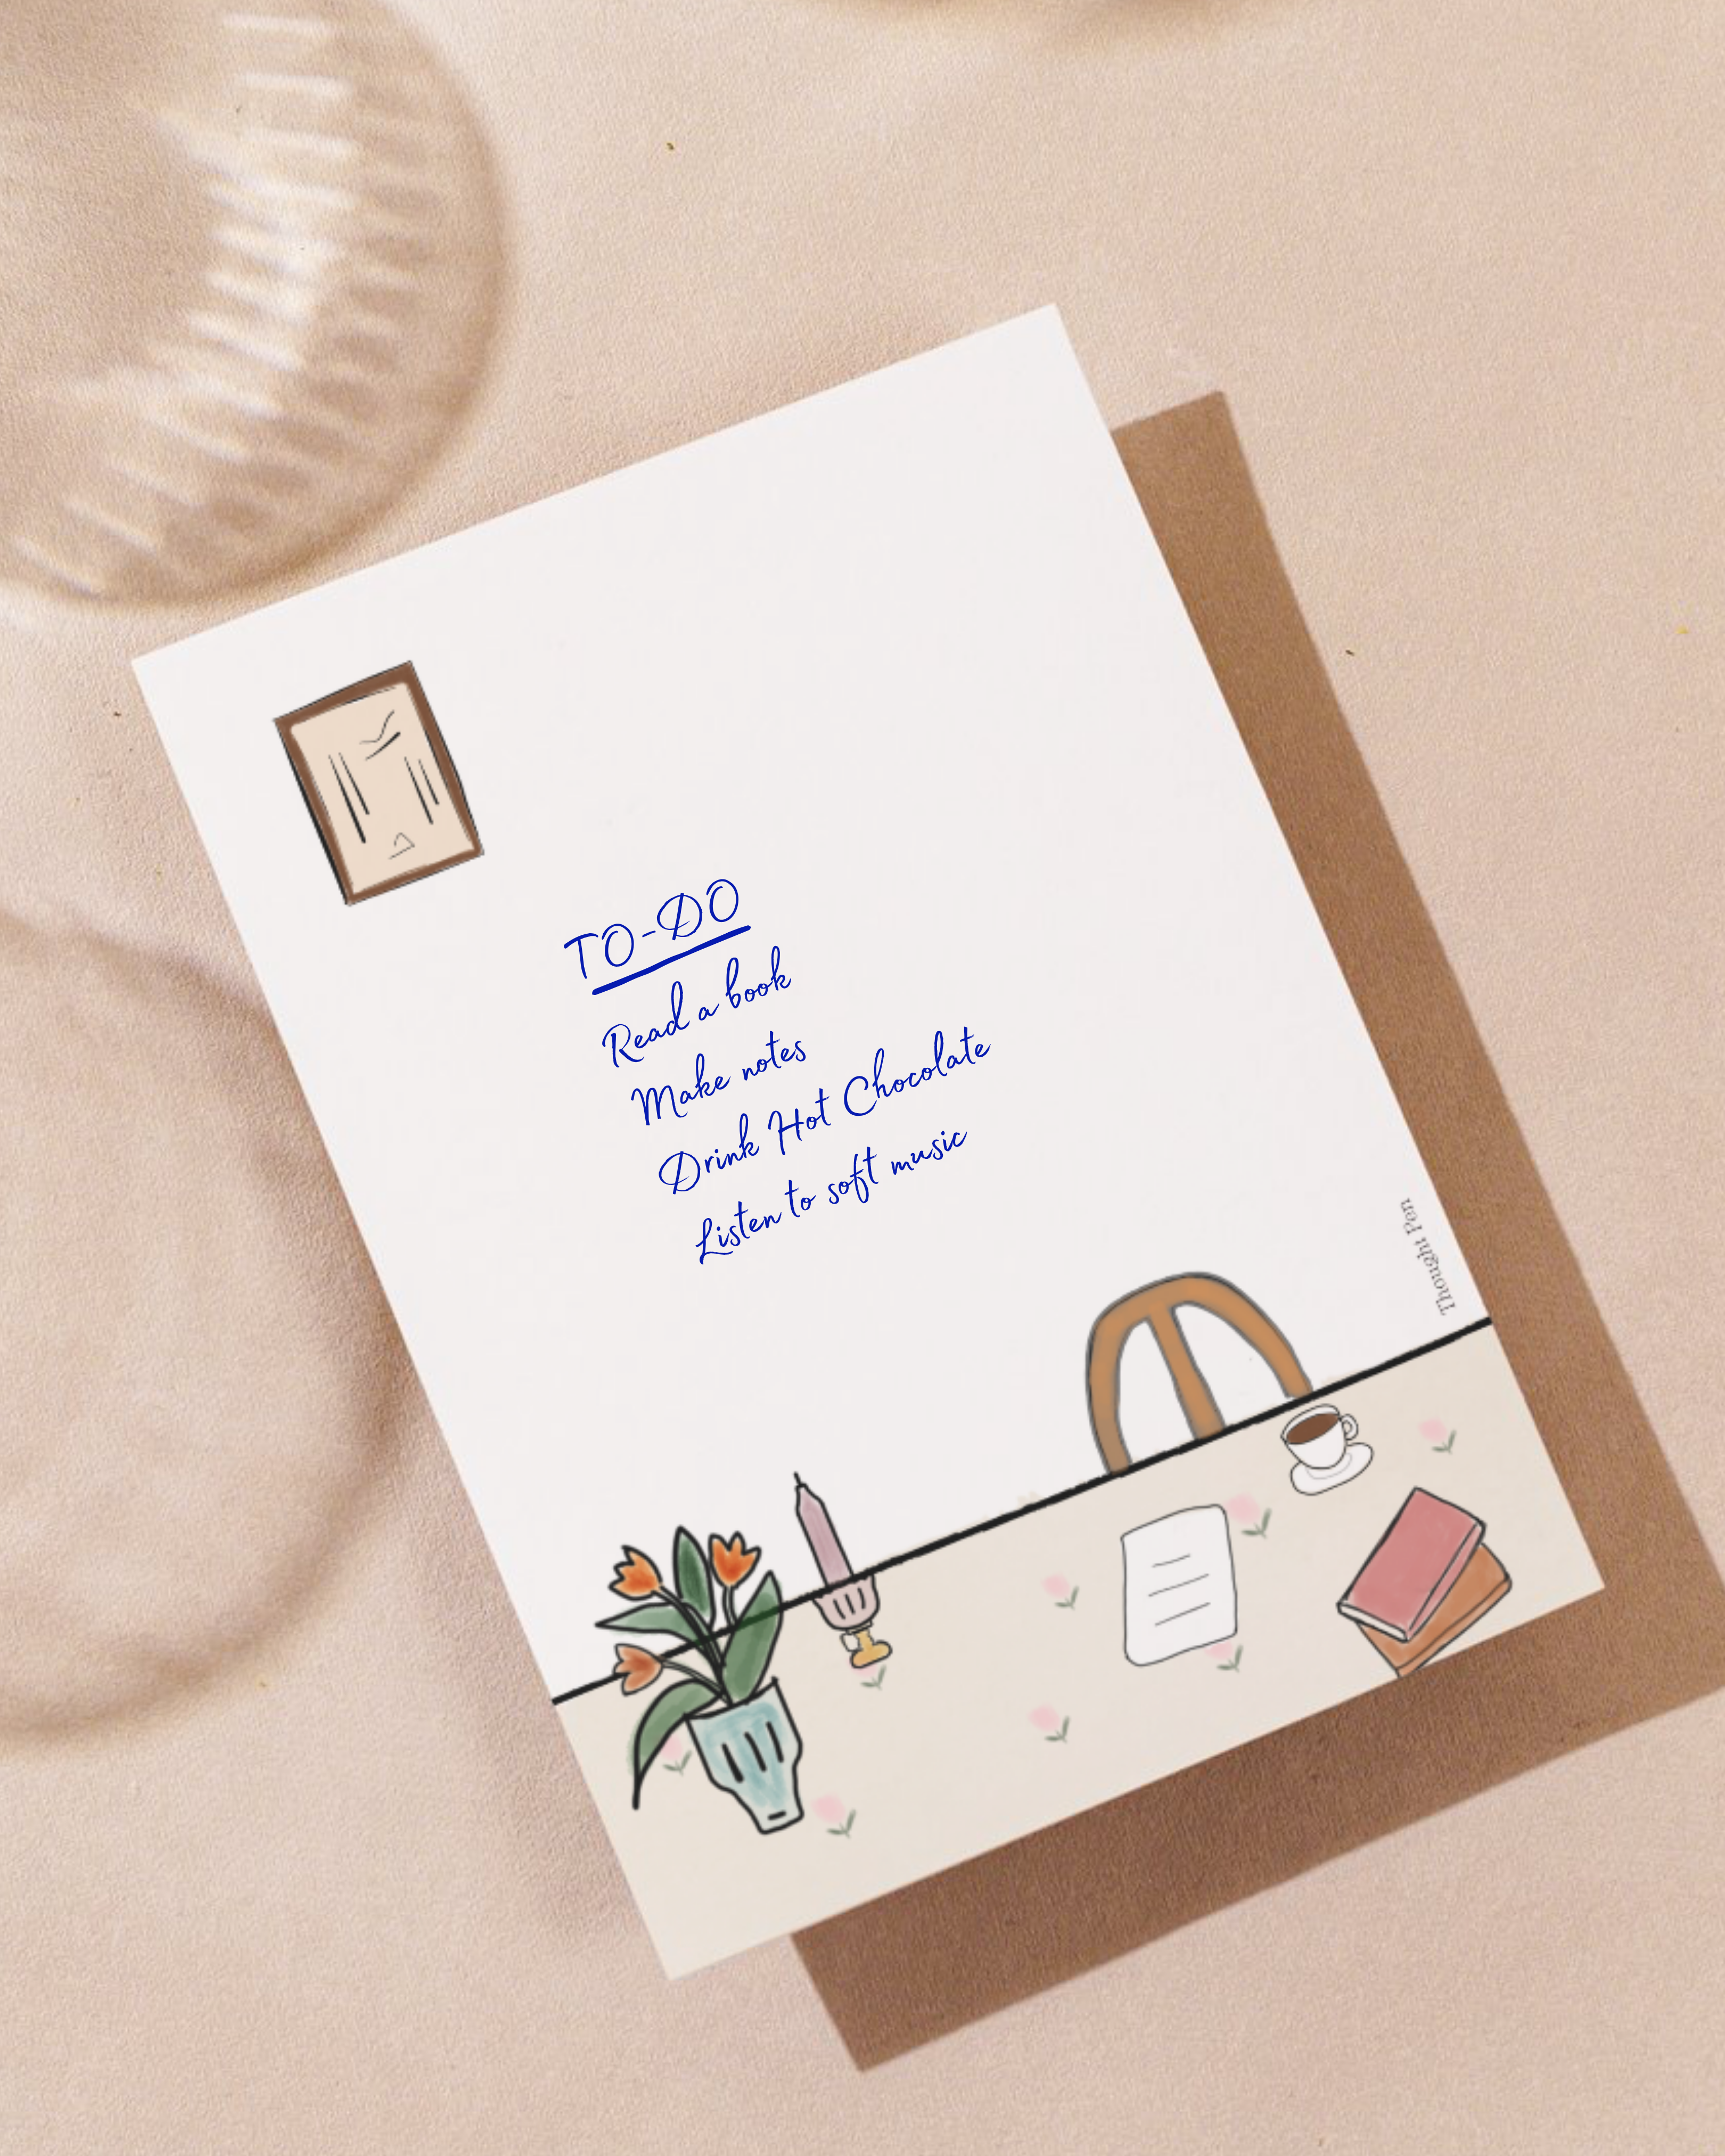 TO-DO
Read a book
Make notes
Drink Hot Chocolate
Listen to soft music
Thought Pen